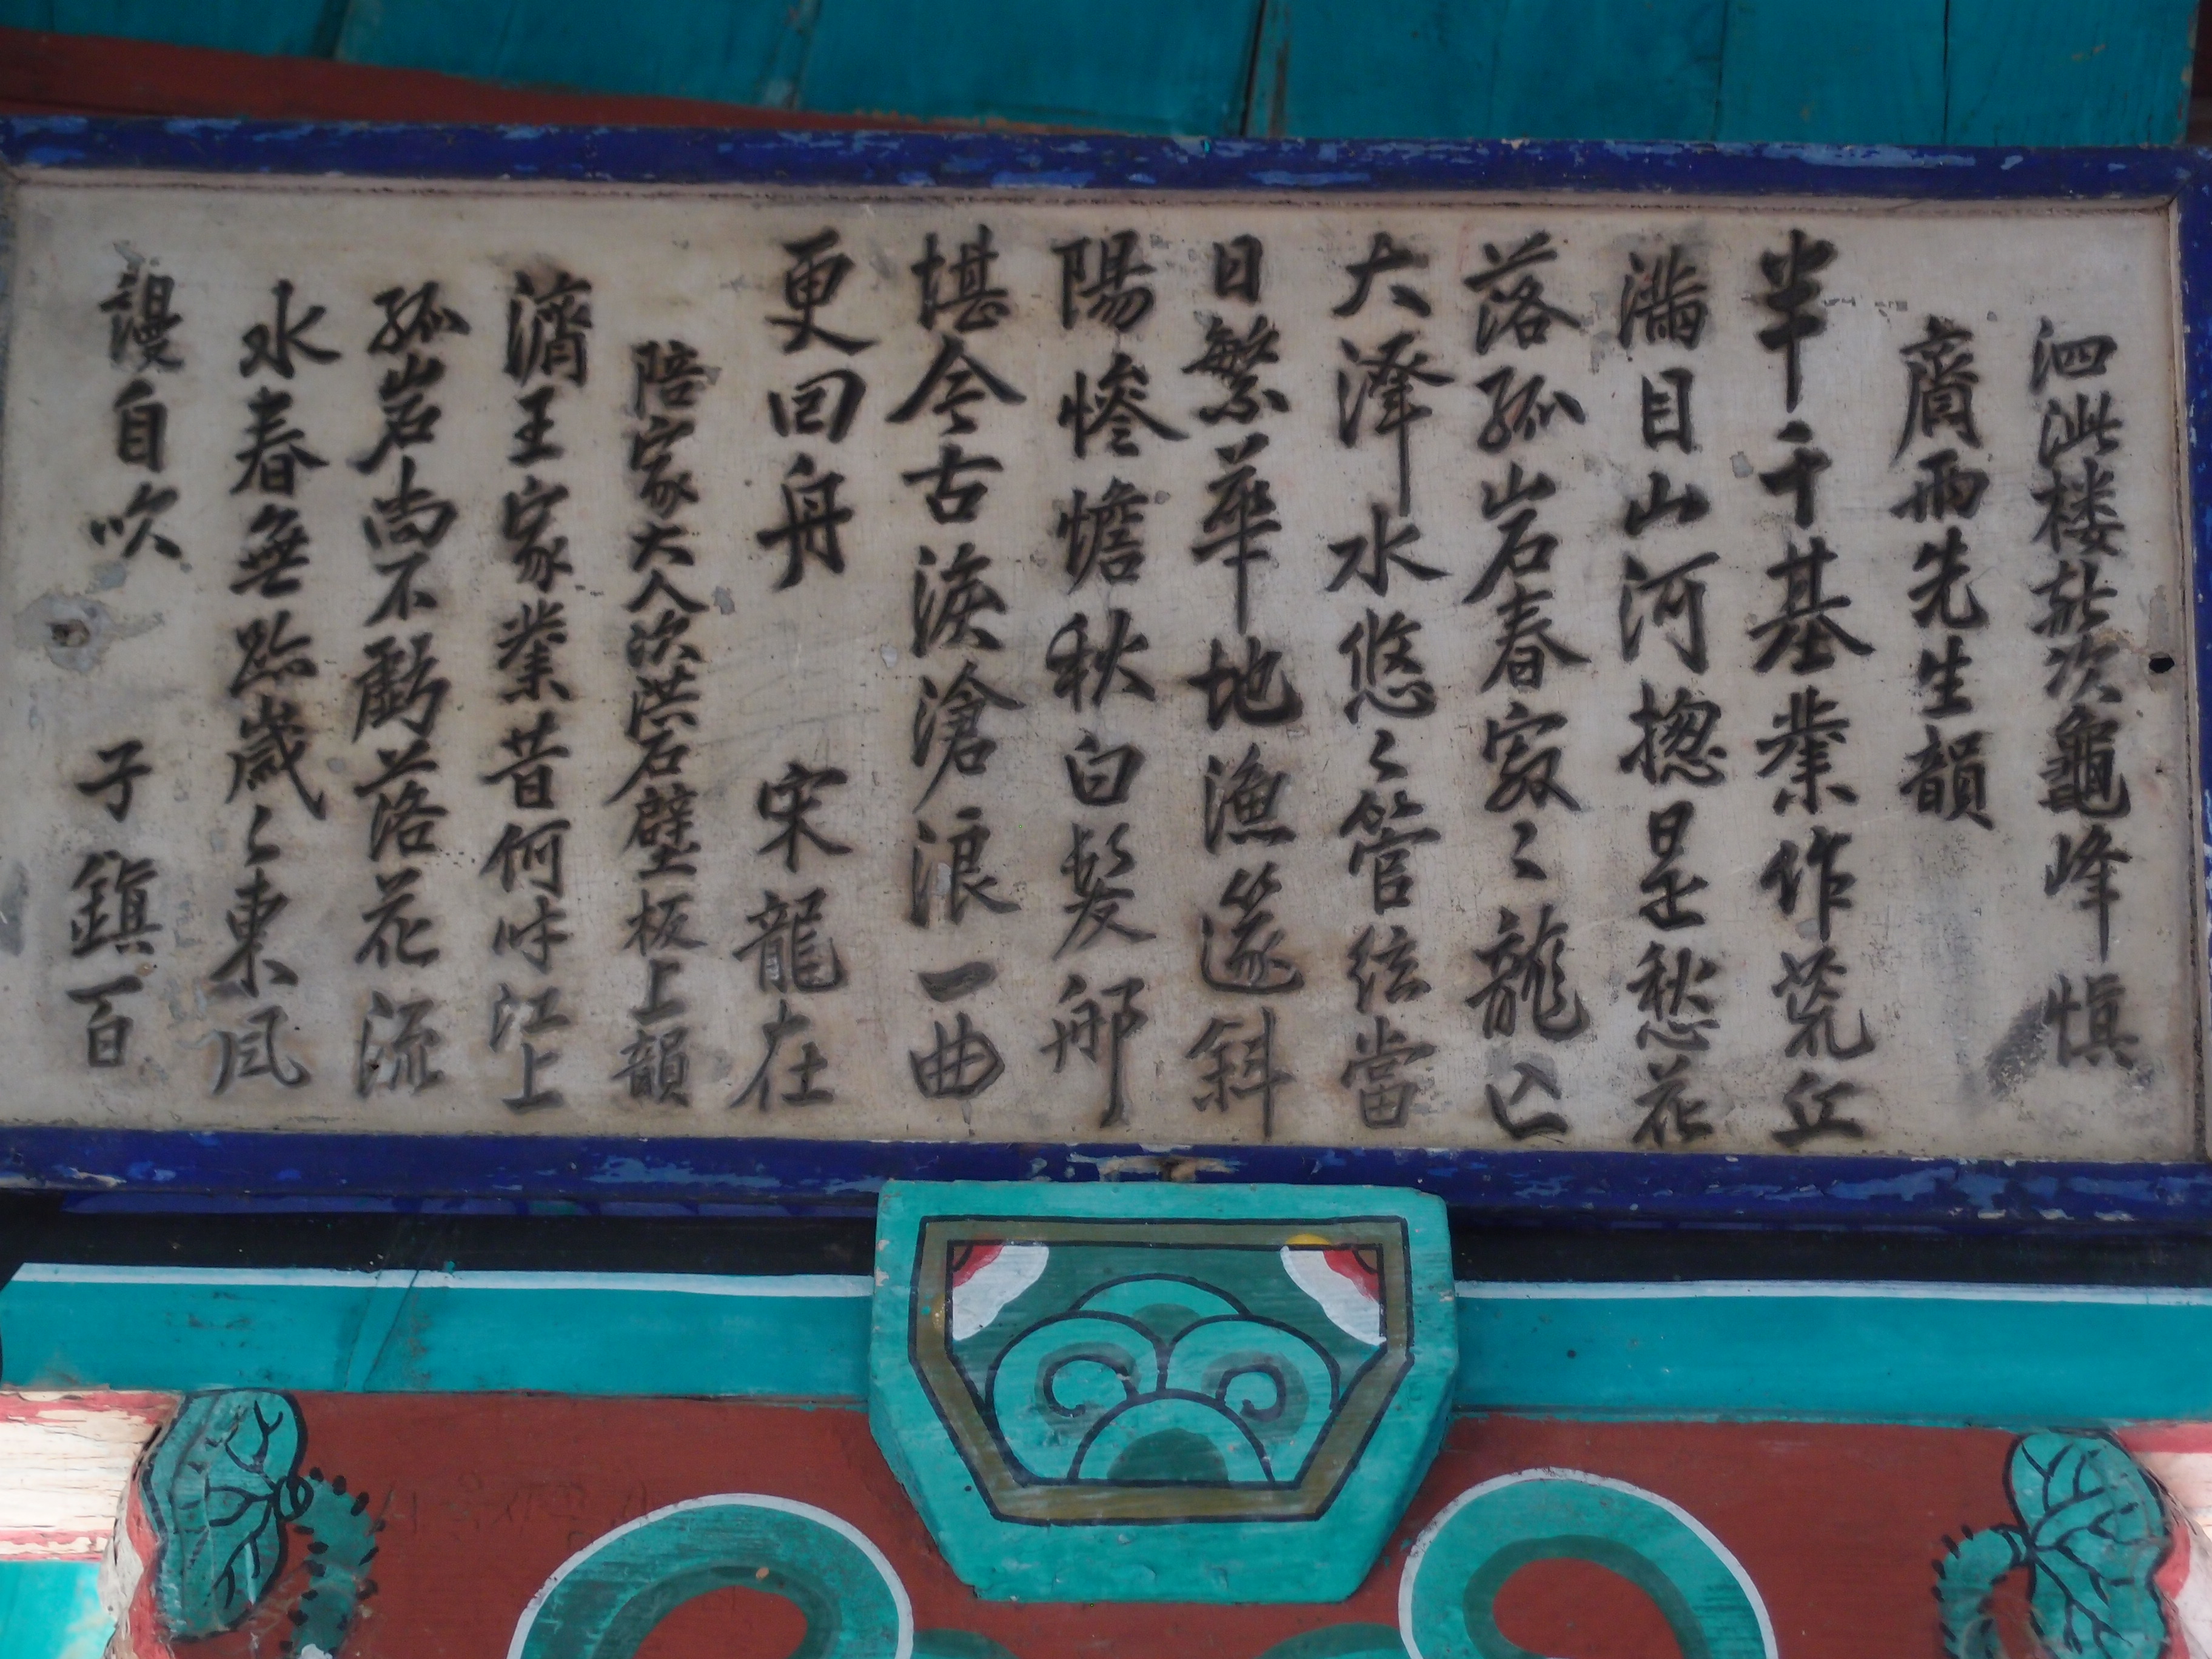 泗沘楼敬次龜峰愼
齎雨先生韻
半千基業作荒丘
滿目山河揔是愁花
落孤岩春寂〻龍亡
大澤水悠〻管絃當
日繁華地漁篴斜
陽慘憺秋白髮那
堪今古淚滄浪一曲
更回舟 宋龍在
陪家大人次洪石壁板上韻
濟王家業昔何味江上
孤岩尚不虧落花流
水春無跡歲〻東風
謾自吹 子鎭百